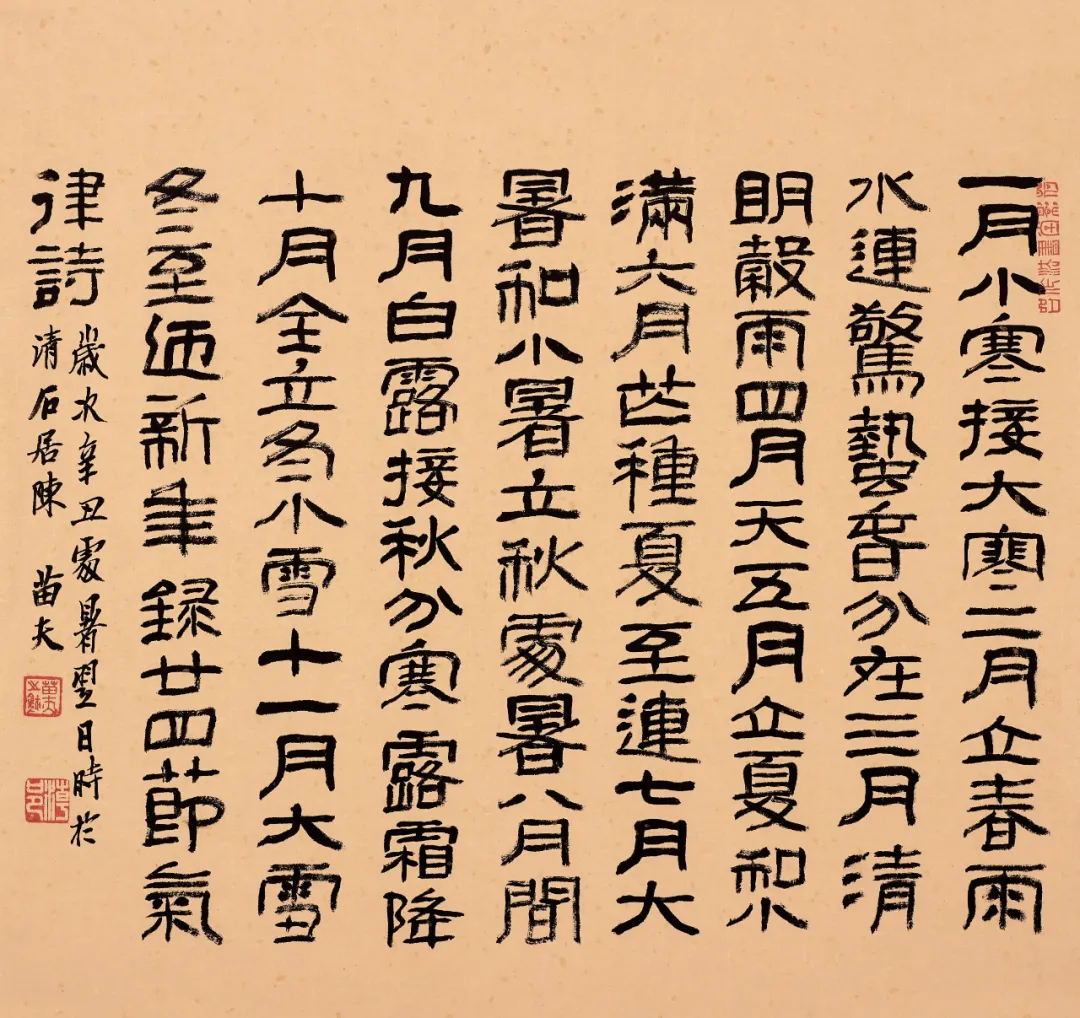 一月小寒接大寒二月立春雨
水連驚蟄春分在三月清
明穀雨四月天五月立夏和小
滿六月芒種夏至連七月大
暑和小暑立秋處暑八月間
九月白露接秋分寒露霜降
十月全立冬小雪十一月大雪
冬至迎新年 錄廿四節氣
律詩
歲次辛丑處暑翌日時於
清石居陳 苗夫